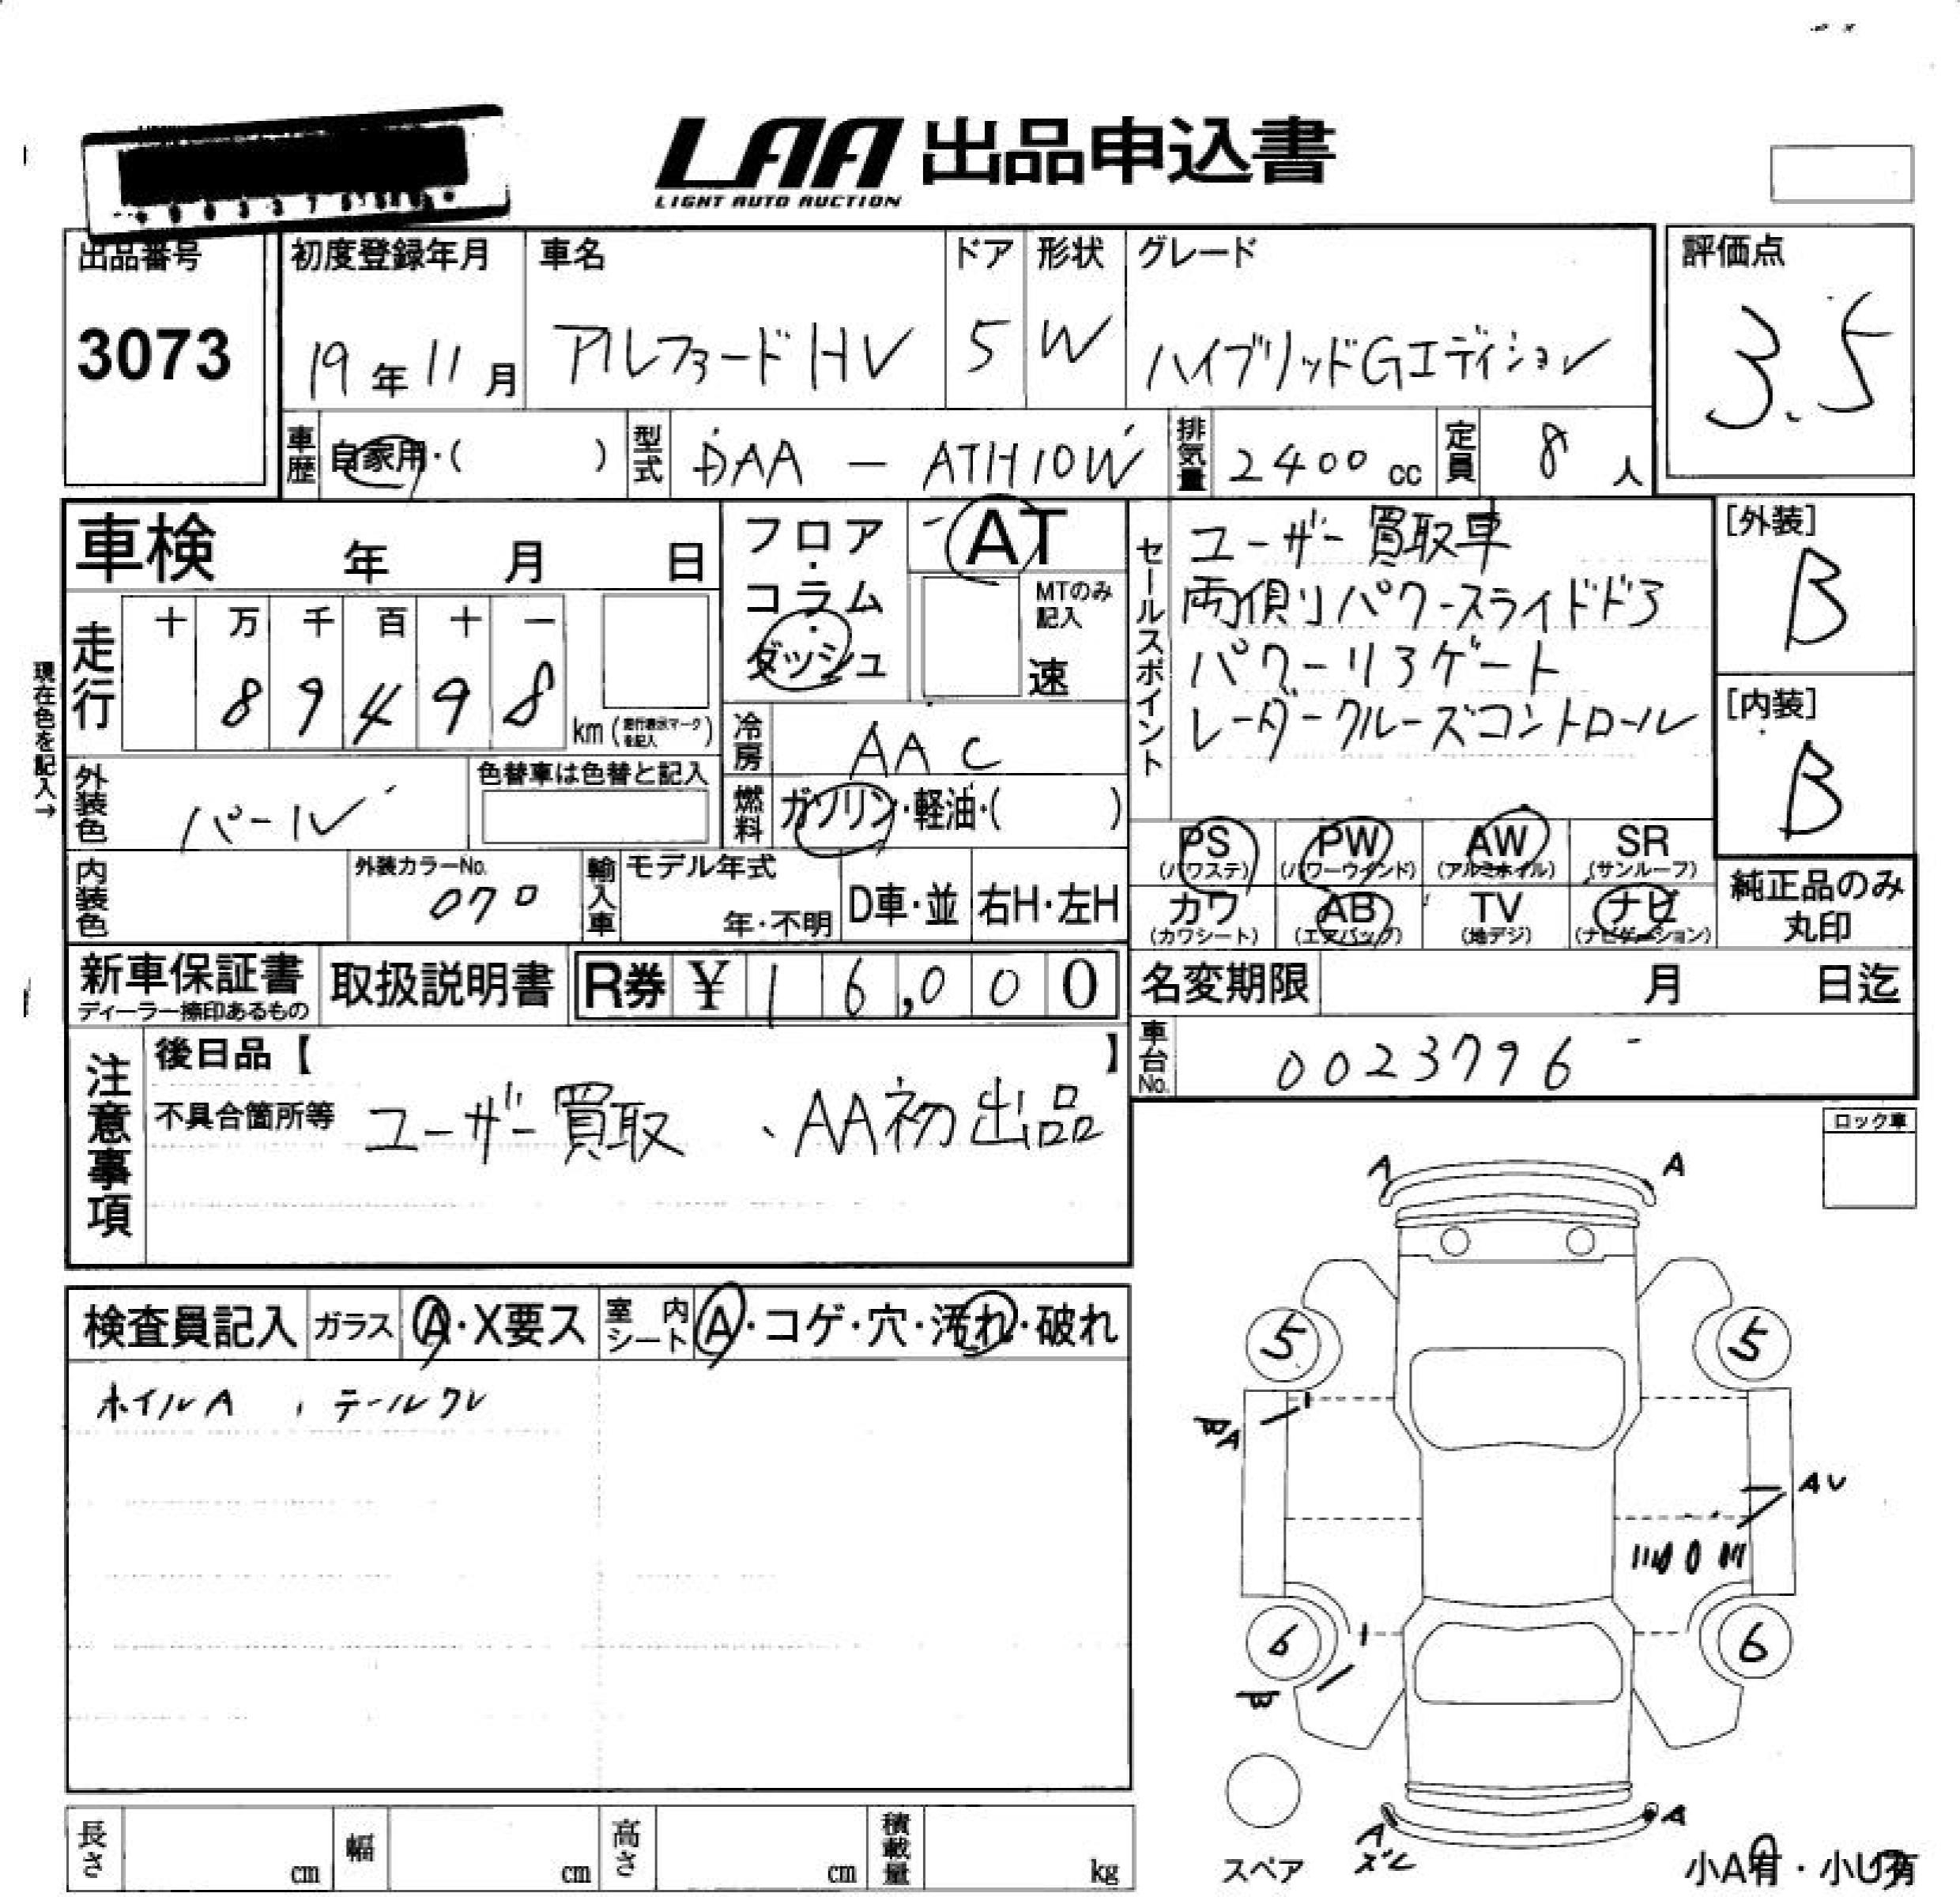 LAA 出品申込書
LIGHT AUTO AUCTION
出品番号
3073
初度登録年月
19年11月
車名
アルファードHV
ドア
5
形状
W
グレード
ハイブリッドGエディション
評価点
3.5
車歴
自家用・( )
型式
DAA - ATH10W
排気量
2400cc
定員
8人
車検 年 月 日
フロア・コラム・ダッシュ
AT
MTのみ記入
速
走行
十 万 千 百 十 一
8 9 4 9 8
km (走行表示マークを記入)
現在色を記入→
冷房
AAC
燃料
ガソリン・軽油・( )
外装色
パール
色替車は色替と記入
内装色
外装カラーNo.
070
輸入車
モデル年式
年・不明
D車・並
右H・左H
セールスポイント
ユーザー買取車
両側リパワースライドドア
パワーリヤゲート
レーダークルーズコントロール
[外装]
B
[内装]
B
PS (パワステ)
PW (パワーウインド)
AW (アルミホイル)
SR (サンルーフ)
カワ (カワシート)
AB (エアバッグ)
TV (地デジ)
ナビ (ナビゲーション)
純正品のみ丸印
新車保証書
ディーラー捺印あるもの
取扱説明書
R券 ¥16,000
名変期限 月 日迄
車台No.
0023796
注意事項
後日品【 】
不具合箇所等
ユーザー買取、AA初出品
ロック車
検査員記入
ガラス A・X要ス
室内シート A・コゲ・穴・汚れ・破れ
ホイルA、テールワレ
A A
5 5
A
AU
6 6
A
A
ズレ
スペア
小A有・小U有
長さ cm
幅 cm
高さ cm
積載量 kg